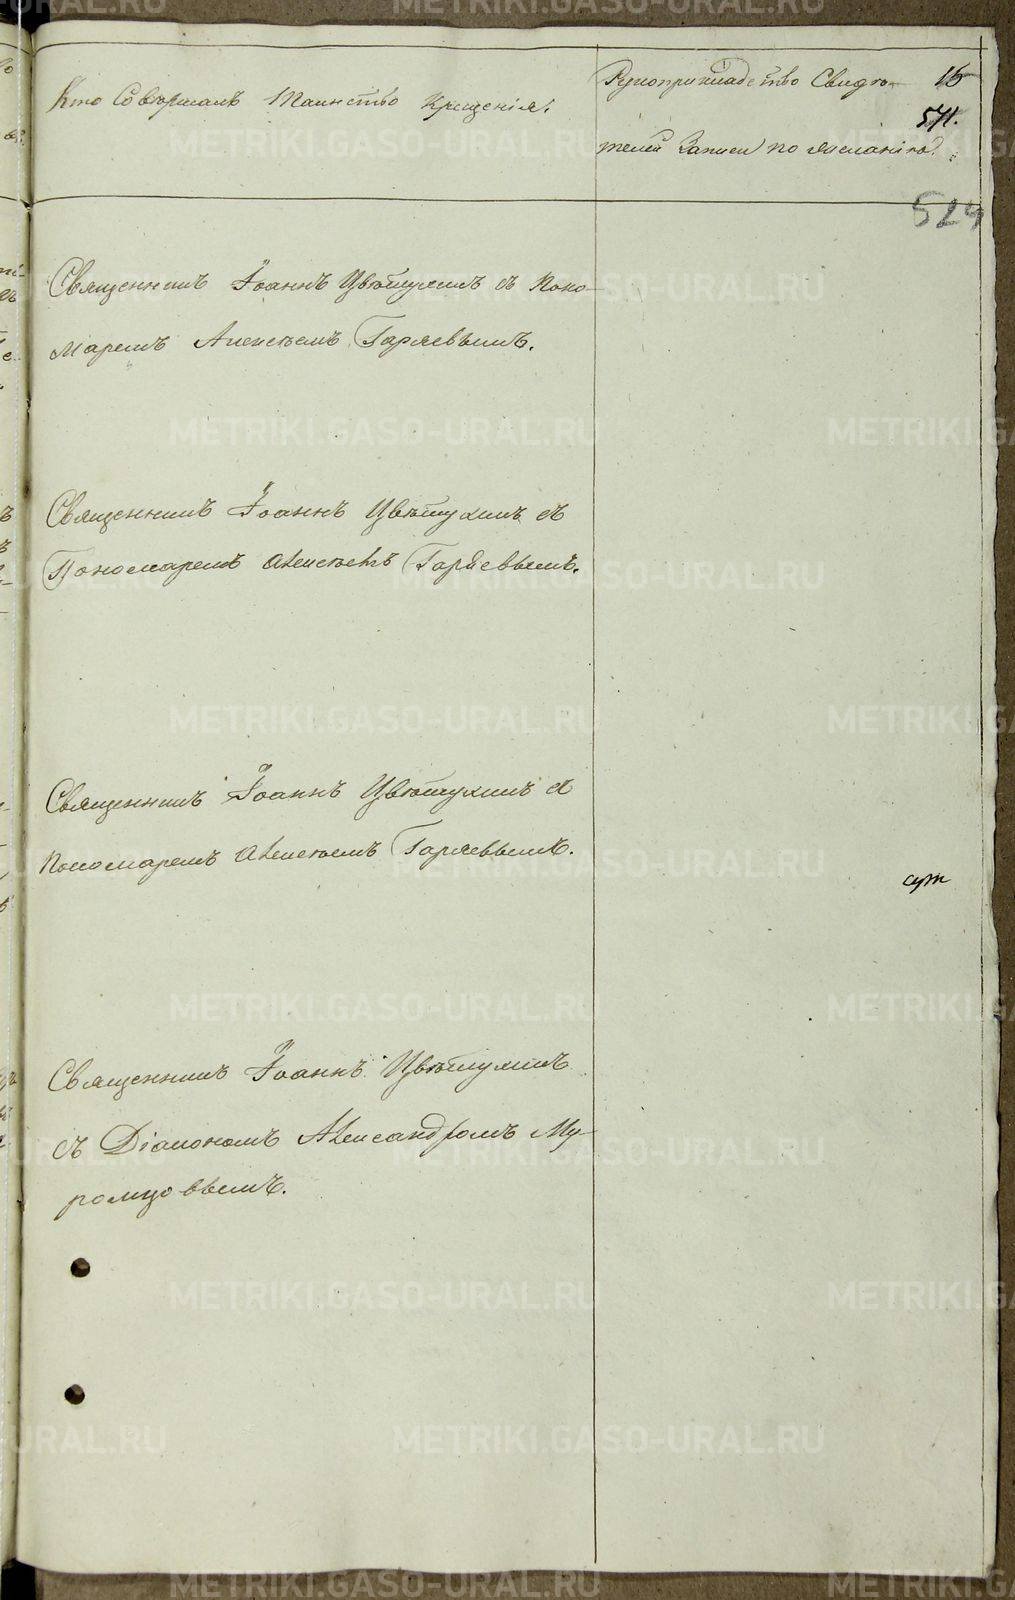 Кто Совершалъ Таинство Крещенія.
Рукоприкладство Свидѣ-
телей Записи по желанію.
16
571.
524
Священникъ Іоаннъ Цвѣтухинъ съ Поно-
маремъ Алексѣемъ Гаряевымъ.
Священникъ Іоаннъ Цвѣтухинъ съ
Пономаремъ Алексѣемъ Гаряевымъ.
Священникъ Іоаннъ Цвѣтухинъ съ
Пономаремъ Алексѣемъ Гаряевымъ.
Священникъ Іоаннъ Цвѣтухинъ
съ Діакономъ Александромъ Му-
ромцовымъ.
METRIKI.GASO-URAL.RU